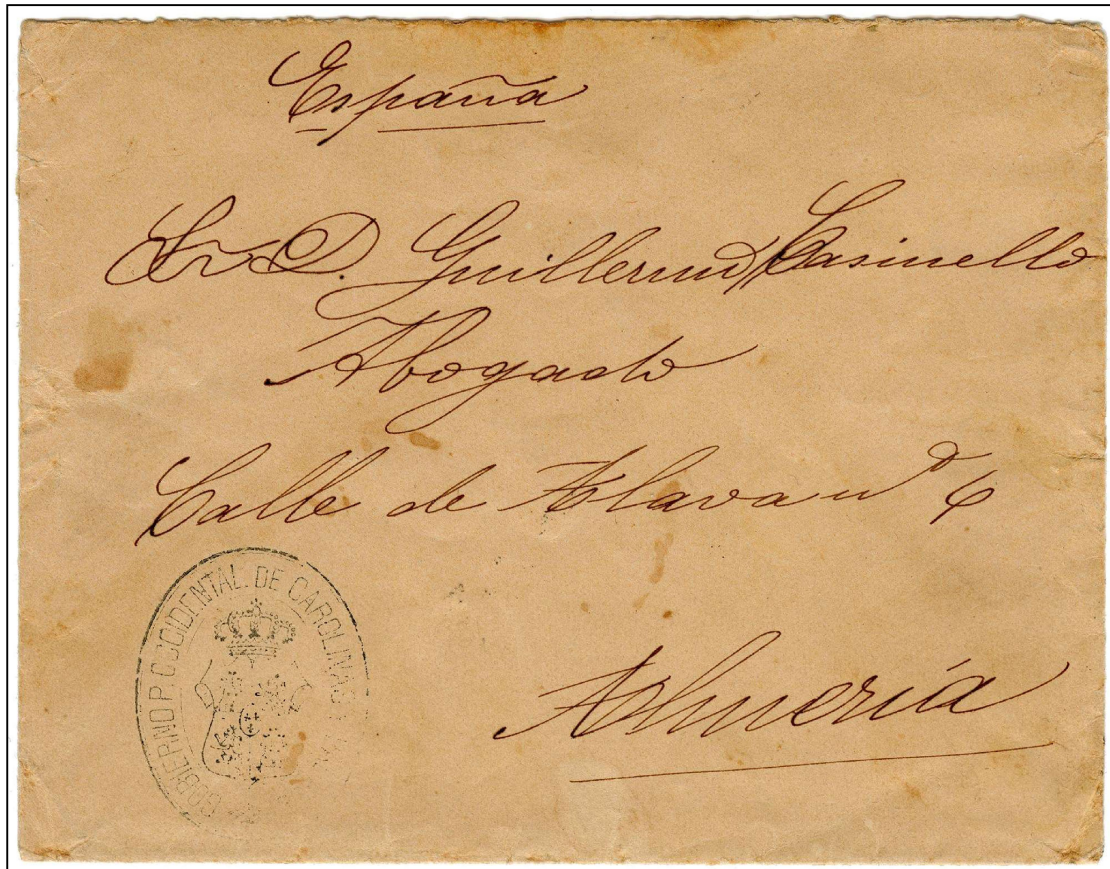 España
Sr D. Guillermo Casinello
Abogado
Calle de Alava nº 6
Almería
GOBIERNO P. OCCIDENTAL. DE CAROLINAS